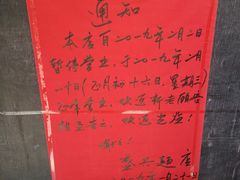 通知
本店自二〇一九年二月二日
暂停营业，于二〇一九年二月
二十日（正月初十六日，星期三）
正常营业，欢迎新老顾客
相互告之，欢迎光临！
谢谢！
盛兴面店